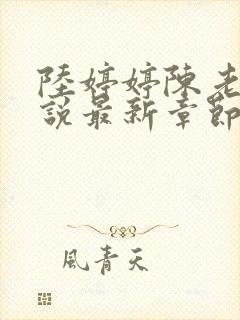 陸婷婷陳老
說最新章節
風青天